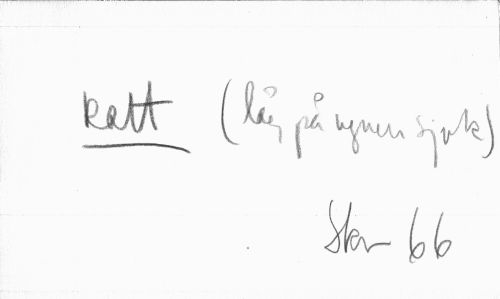 katt (låg på ugnen sjuk)
Skr 66